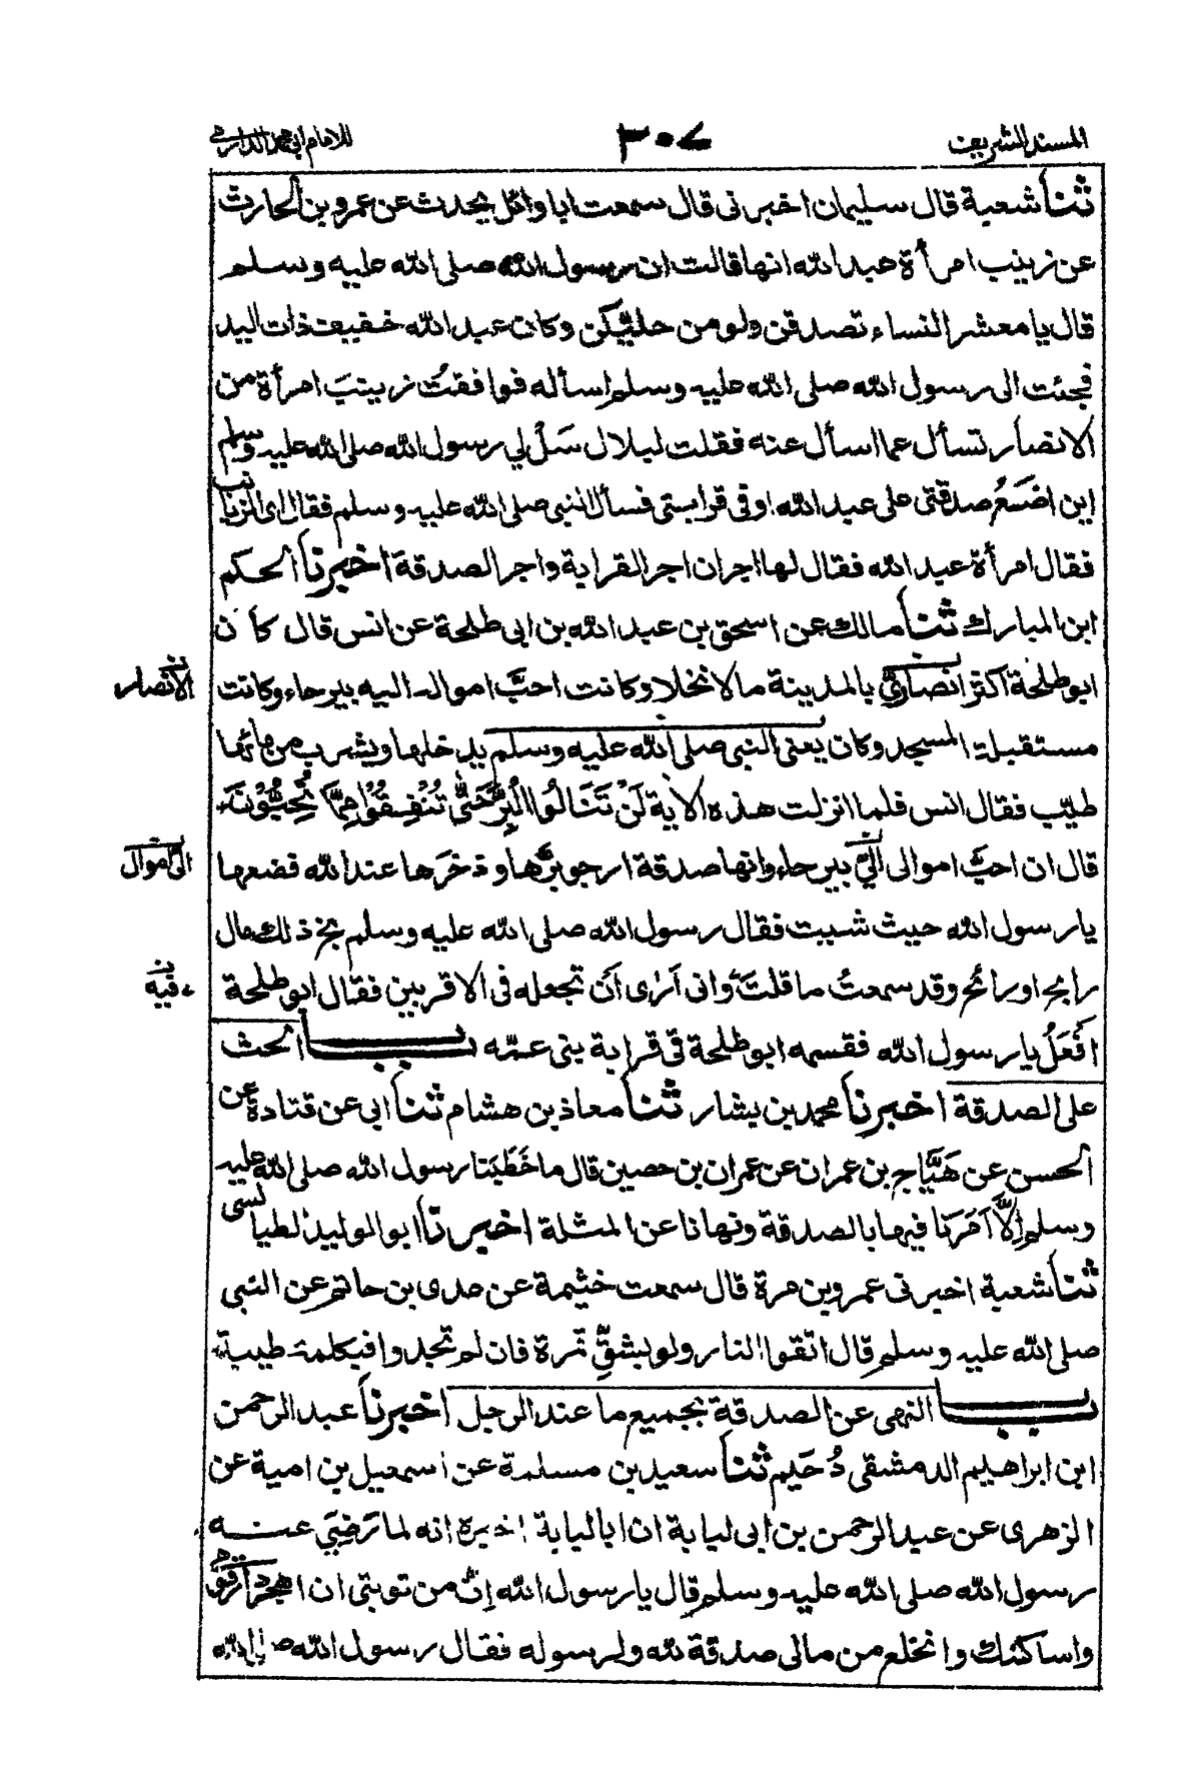 المسند الشريف ٢٠٧ للامام ابي محمد الدارمي
ثنا شعبة قال سليمان اخبرنى قال سمعت ابا وائل يحدث عن عمرو بن الحارث
عن زينب امرأة عبد الله انها قالت ان رسول الله صلى الله عليه وسلم
قال يا معشر النساء تصدقن ولو من حليّكن وكان عبد الله خفيف ذات اليد
فجئت الى رسول الله صلى الله عليه وسلم اسأله فوافقتُ زينبَ امرأة من
الانصار تسأل عما اسأل عنه فقلت لبلال سَلْ لي رسول الله صلى الله عليه وسلم
اين اضَعُ صدقتى على عبد الله او فى قرابتى فسأل النبى صلى الله عليه وسلم فقال اى الزيانب
فقال امرأة عبد الله فقال لها اجران اجر القرابة واجر الصدقة اخبرنا الحكم
ابن المبارك ثنا مالك عن اسحق بن عبد الله بن ابى طلحة عن انس قال كان
ابو طلحة اكثر انصاريٍّ بالمدينة مالا نخلا وكانت احبَّ امواله اليه بيرحاء وكانت
الانصار
مستقبلة المسجد وكان يعنى النبى صلى الله عليه وسلم يدخلها ويشرب من مائها
طيّب فقال انس فلما انزلت هذه الاية لَنْ تَنَالُوا الْبِرَّ حَتّٰى تُنْفِقُوْا مِمَّا تُحِبُّوْنَ
قال ان احبَّ اموالى اليَّ بيرحاء وانها صدقة ارجو برَّها وذخرَها عند الله فضعها
الىّ اموال
يا رسول الله حيث شيت فقال رسول الله صلى الله عليه وسلم بخ ذلك مال
رابح او رائح وقد سمعتُ ما قلتَ وانى اَرٰى اَن تجعله فى الاقربين فقال ابو طلحة
فيه
افْعَلُ يا رسول الله فقسمه ابو طلحة فى قرابة بنى عمّه باب الحث
على الصدقة اخبرنا محمد بن بشار ثنا معاذ بن هشام ثنا ابى عن قتادة عن
الحسن عن هَيَّاج بن عمران عن عمران بن حصين قال ما خَطَبَنا رسول الله صلى الله عليه
وسلم اِلَّا اَمَرَنا فيها بالصدقة ونهانا عن المثلة اخبرنا ابو الوليد الطيالسى
ثنا شعبة اخبرنى عمرو بن مرة قال سمعت خثيمة عن عدى بن حاتم عن النبى
صلى الله عليه وسلم قال اتّقوا النار ولو بشقّ تمرة فان لم تجدوا فبكلمة طيبة
باب النهى عن الصدقة بجميع ما عند الرجل اخبرنا عبد الرحمن
ابن ابراهيم الدمشقى دُحَيم ثنا سعيد بن مسلمة عن اسمعيل بن امية عن
الزهرى عن عبد الرحمن بن ابى لبابة ان ابا لبابة اخبره انه لما رَضِيَ عنه
رسول الله صلى الله عليه وسلم قال يا رسول الله اِنَّ من توبتى ان اهجر دار قومى
واساكنك وانخلع من مالى صدقة لله ولرسوله فقال رسول الله صلى الله